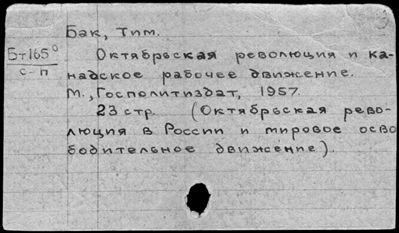 Бак, Тим.
Б-165⁰
с-п
Октябрьская революция и ка-
надское рабочее движение.
М., Госполитиздат, 1957.
23 стр. (Октябрьская рево-
люция в России и мировое осво
бодительное движение).